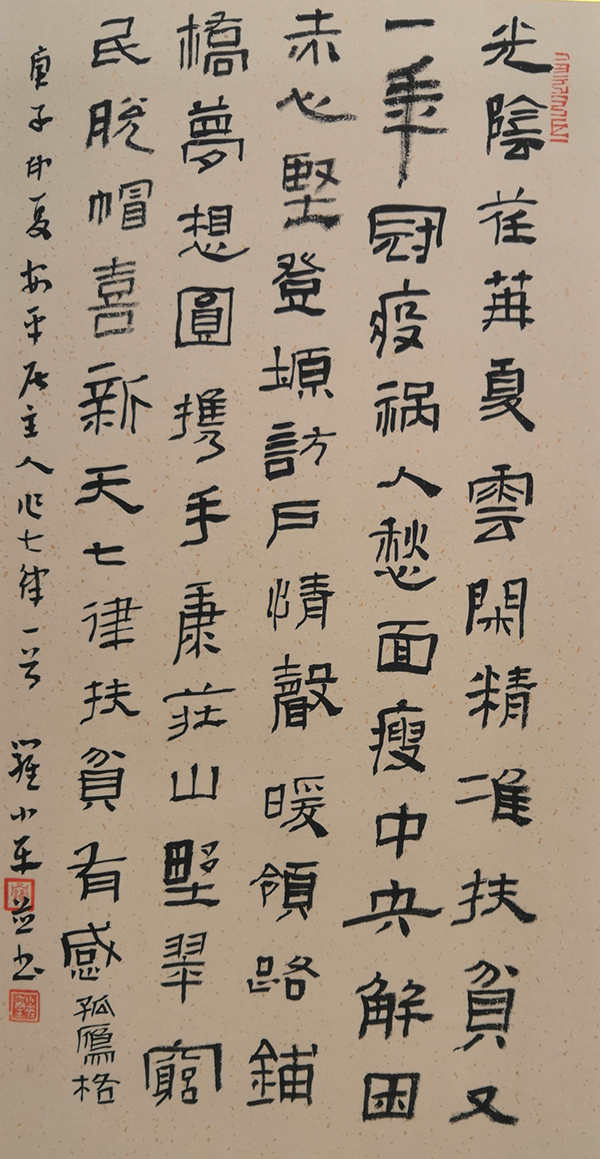 光陰荏苒夏雲閑精准扶貧又
一年冠疫祸人愁面瘦中央解困
赤心堅登塬訪户情聲暖領路鋪
橋夢想圓携手康莊山墅翠窮
民脱帽喜新天七律扶貧有感孤鴈格
庚子中夏平居主人作七律一首羅小并书